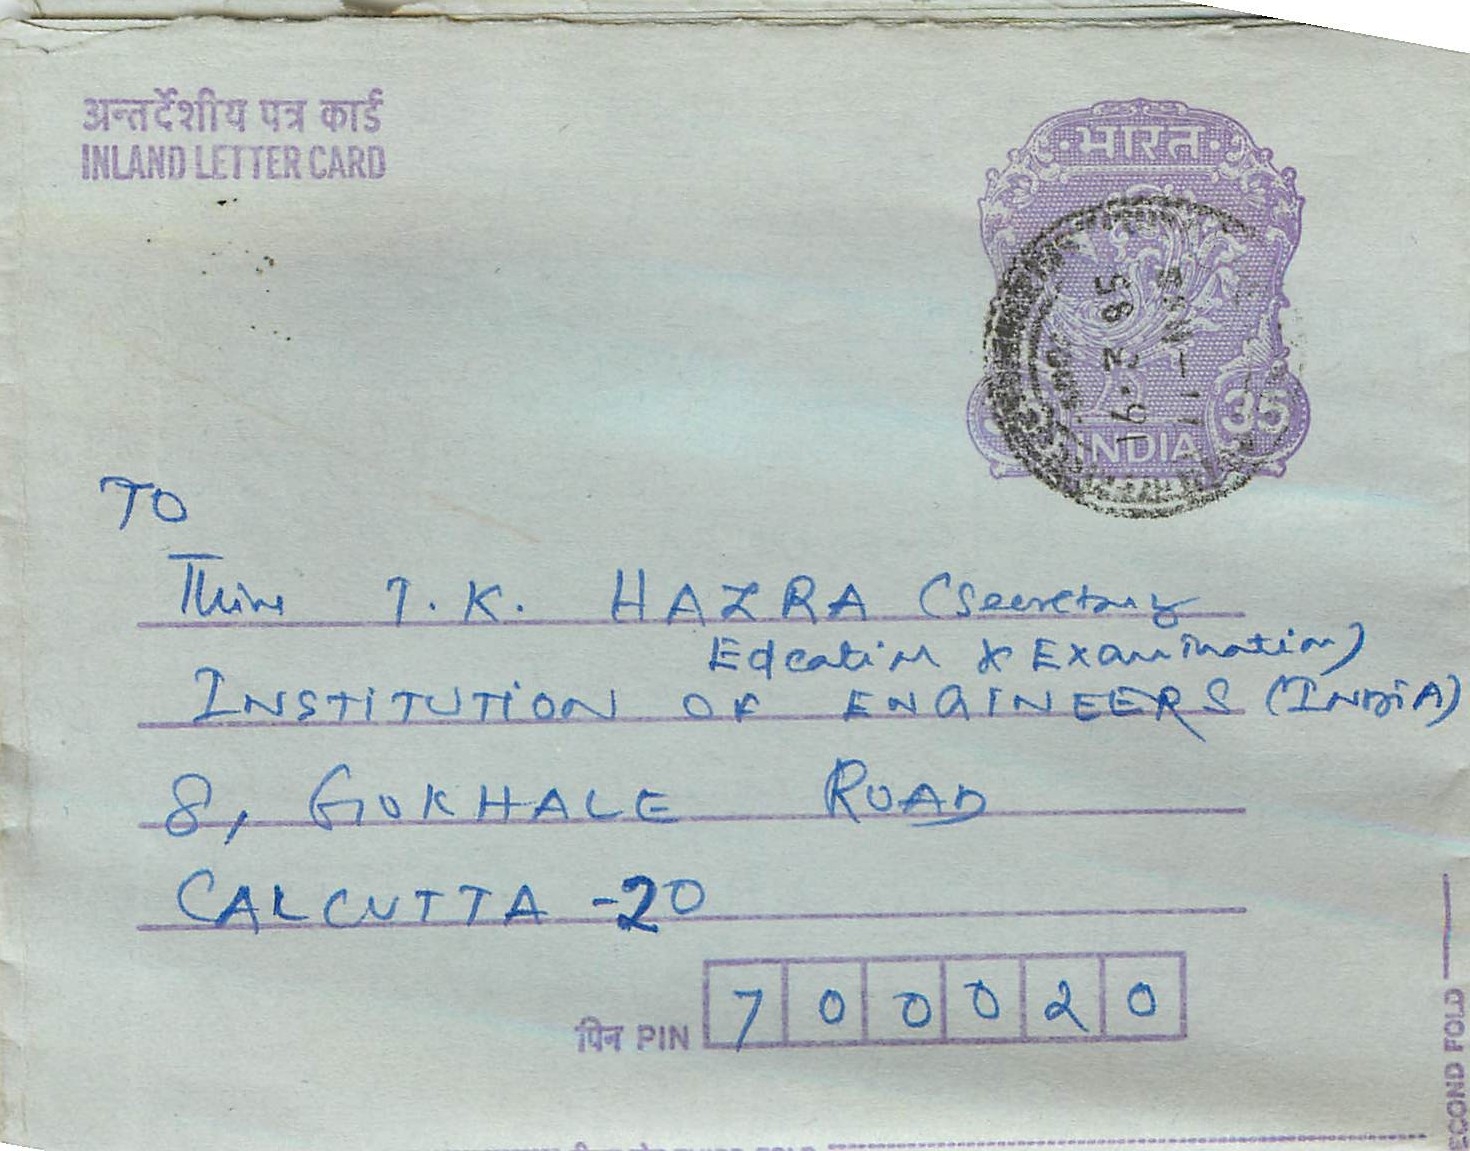 अन्तर्देशीय पत्र कार्ड
INLAND LETTER CARD
भारत
16.3.85
35
INDIA
TO
T. K. HAZRA (Secretary
Edcation & Examination)
INSTITUTION OF ENGINEERS (INDIA)
8, GOKHALE ROAD
CALCUTTA -20
पिन PIN 700020
SECOND FOLD